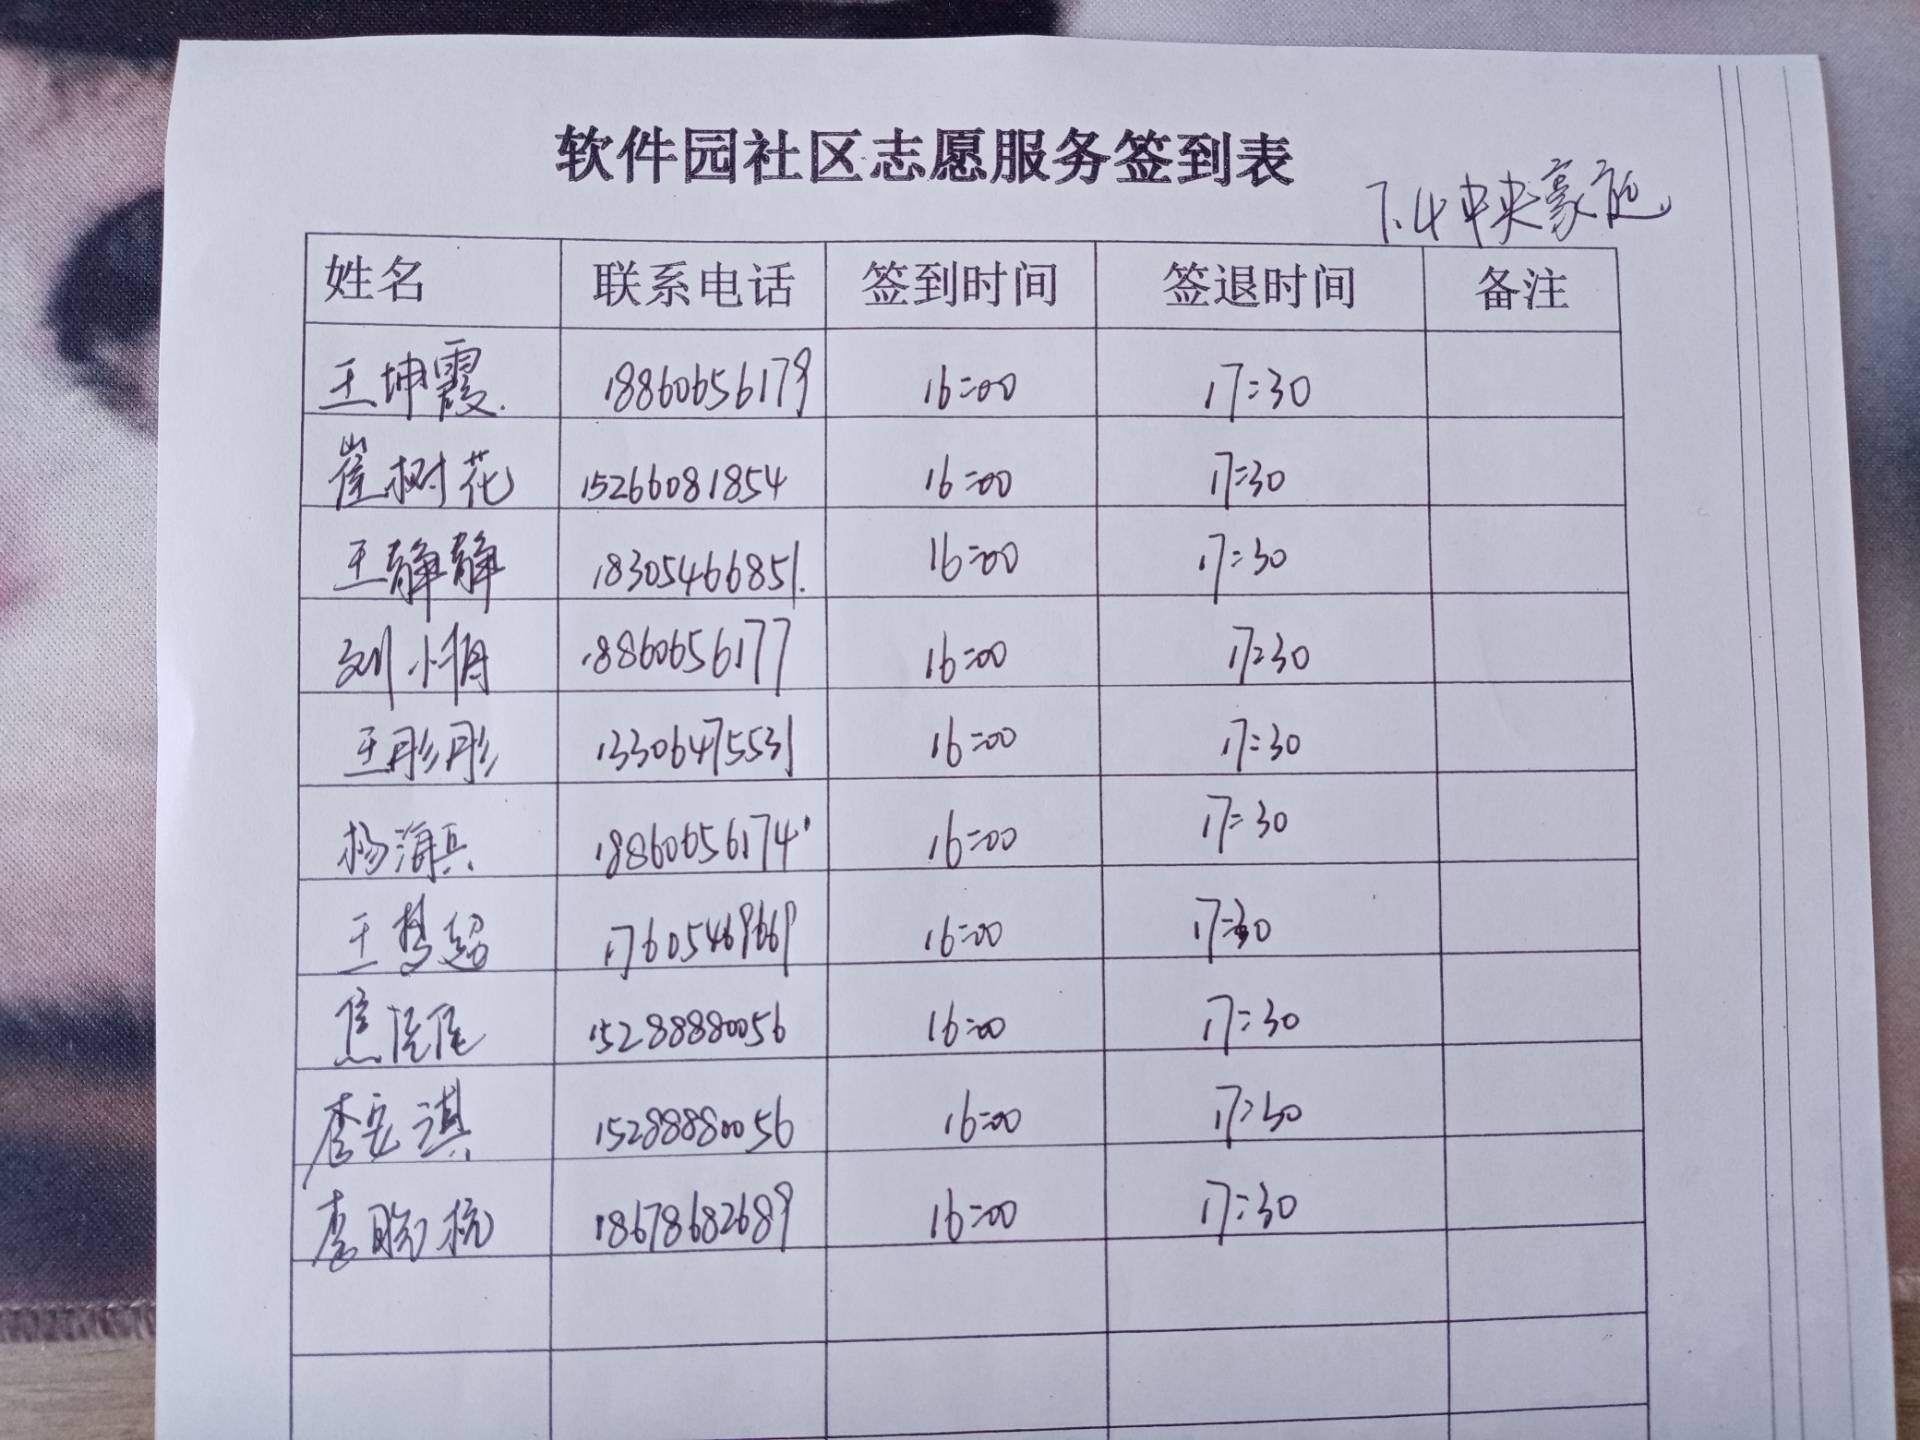 软件园社区志愿服务签到表
7.4中央豪庭
姓名 联系电话 签到时间 签退时间 备注
王坤霞 18860656179 16:00 17:30
崔树花 15266081854 16:00 17:30
王静静 18305466851 16:00 17:30
刘小娟 18860656177 16:00 17:30
王彤彤 13306475531 16:00 17:30
杨海兵 18860656174 16:00 17:30
王梦超 17605469669 16:00 17:30
焦 15288880056 16:00 17:30
李安淇 15288880056 16:00 17:30
李晓杭 18678682689 16:00 17:30